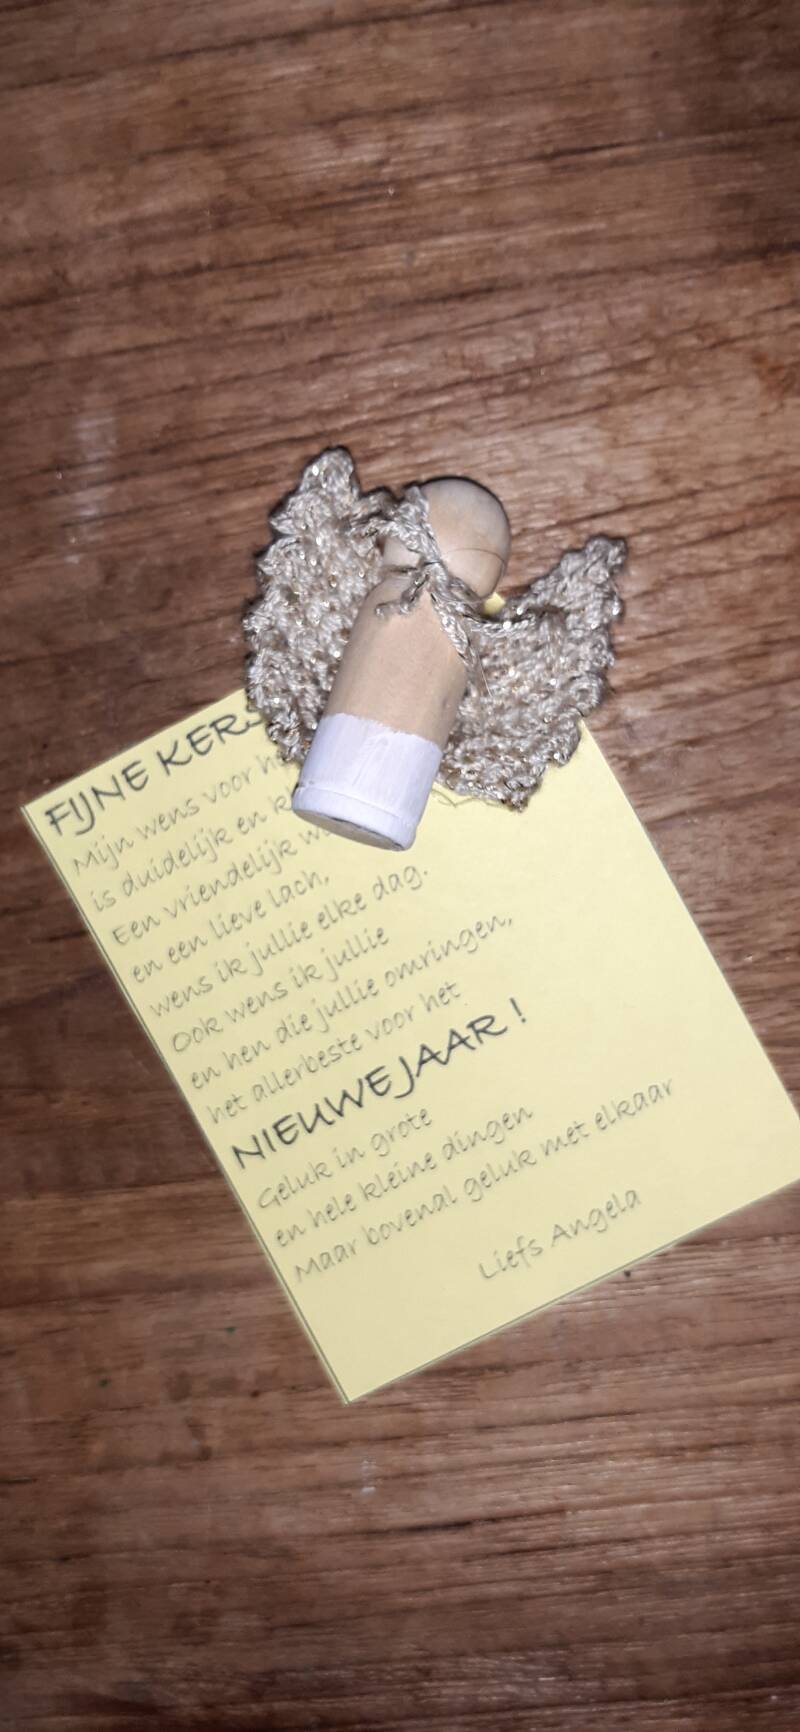 FIJNE KERS
Mijn wens voor he
is duidelijk en k
Een vriendelijk wo
en een lieve lach,
wens ik jullie elke dag.
Ook wens ik jullie
en hen die jullie omringen,
het allerbeste voor het
NIEUWEJAAR !
Geluk in grote
en hele kleine dingen
Maar bovenal geluk met elkaar
Liefs Angela